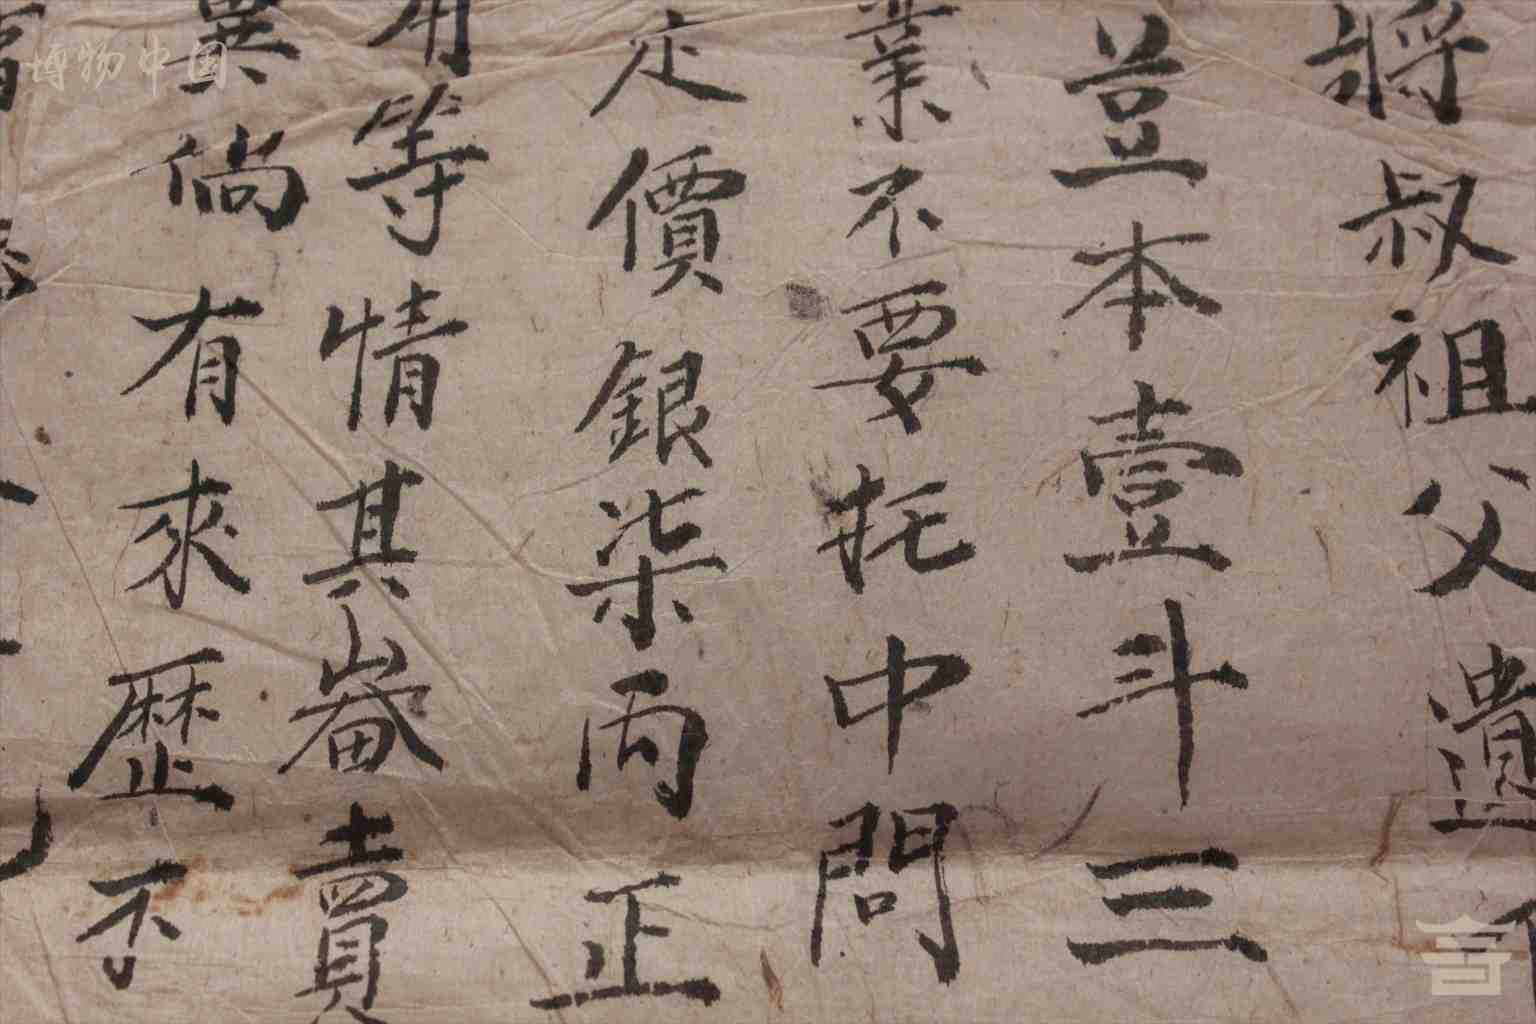 將叔祖父遺
荳本壹斗三
業不要托中問
定價銀柒両正
等情其畨賣
異倘有來歷不
博物中国